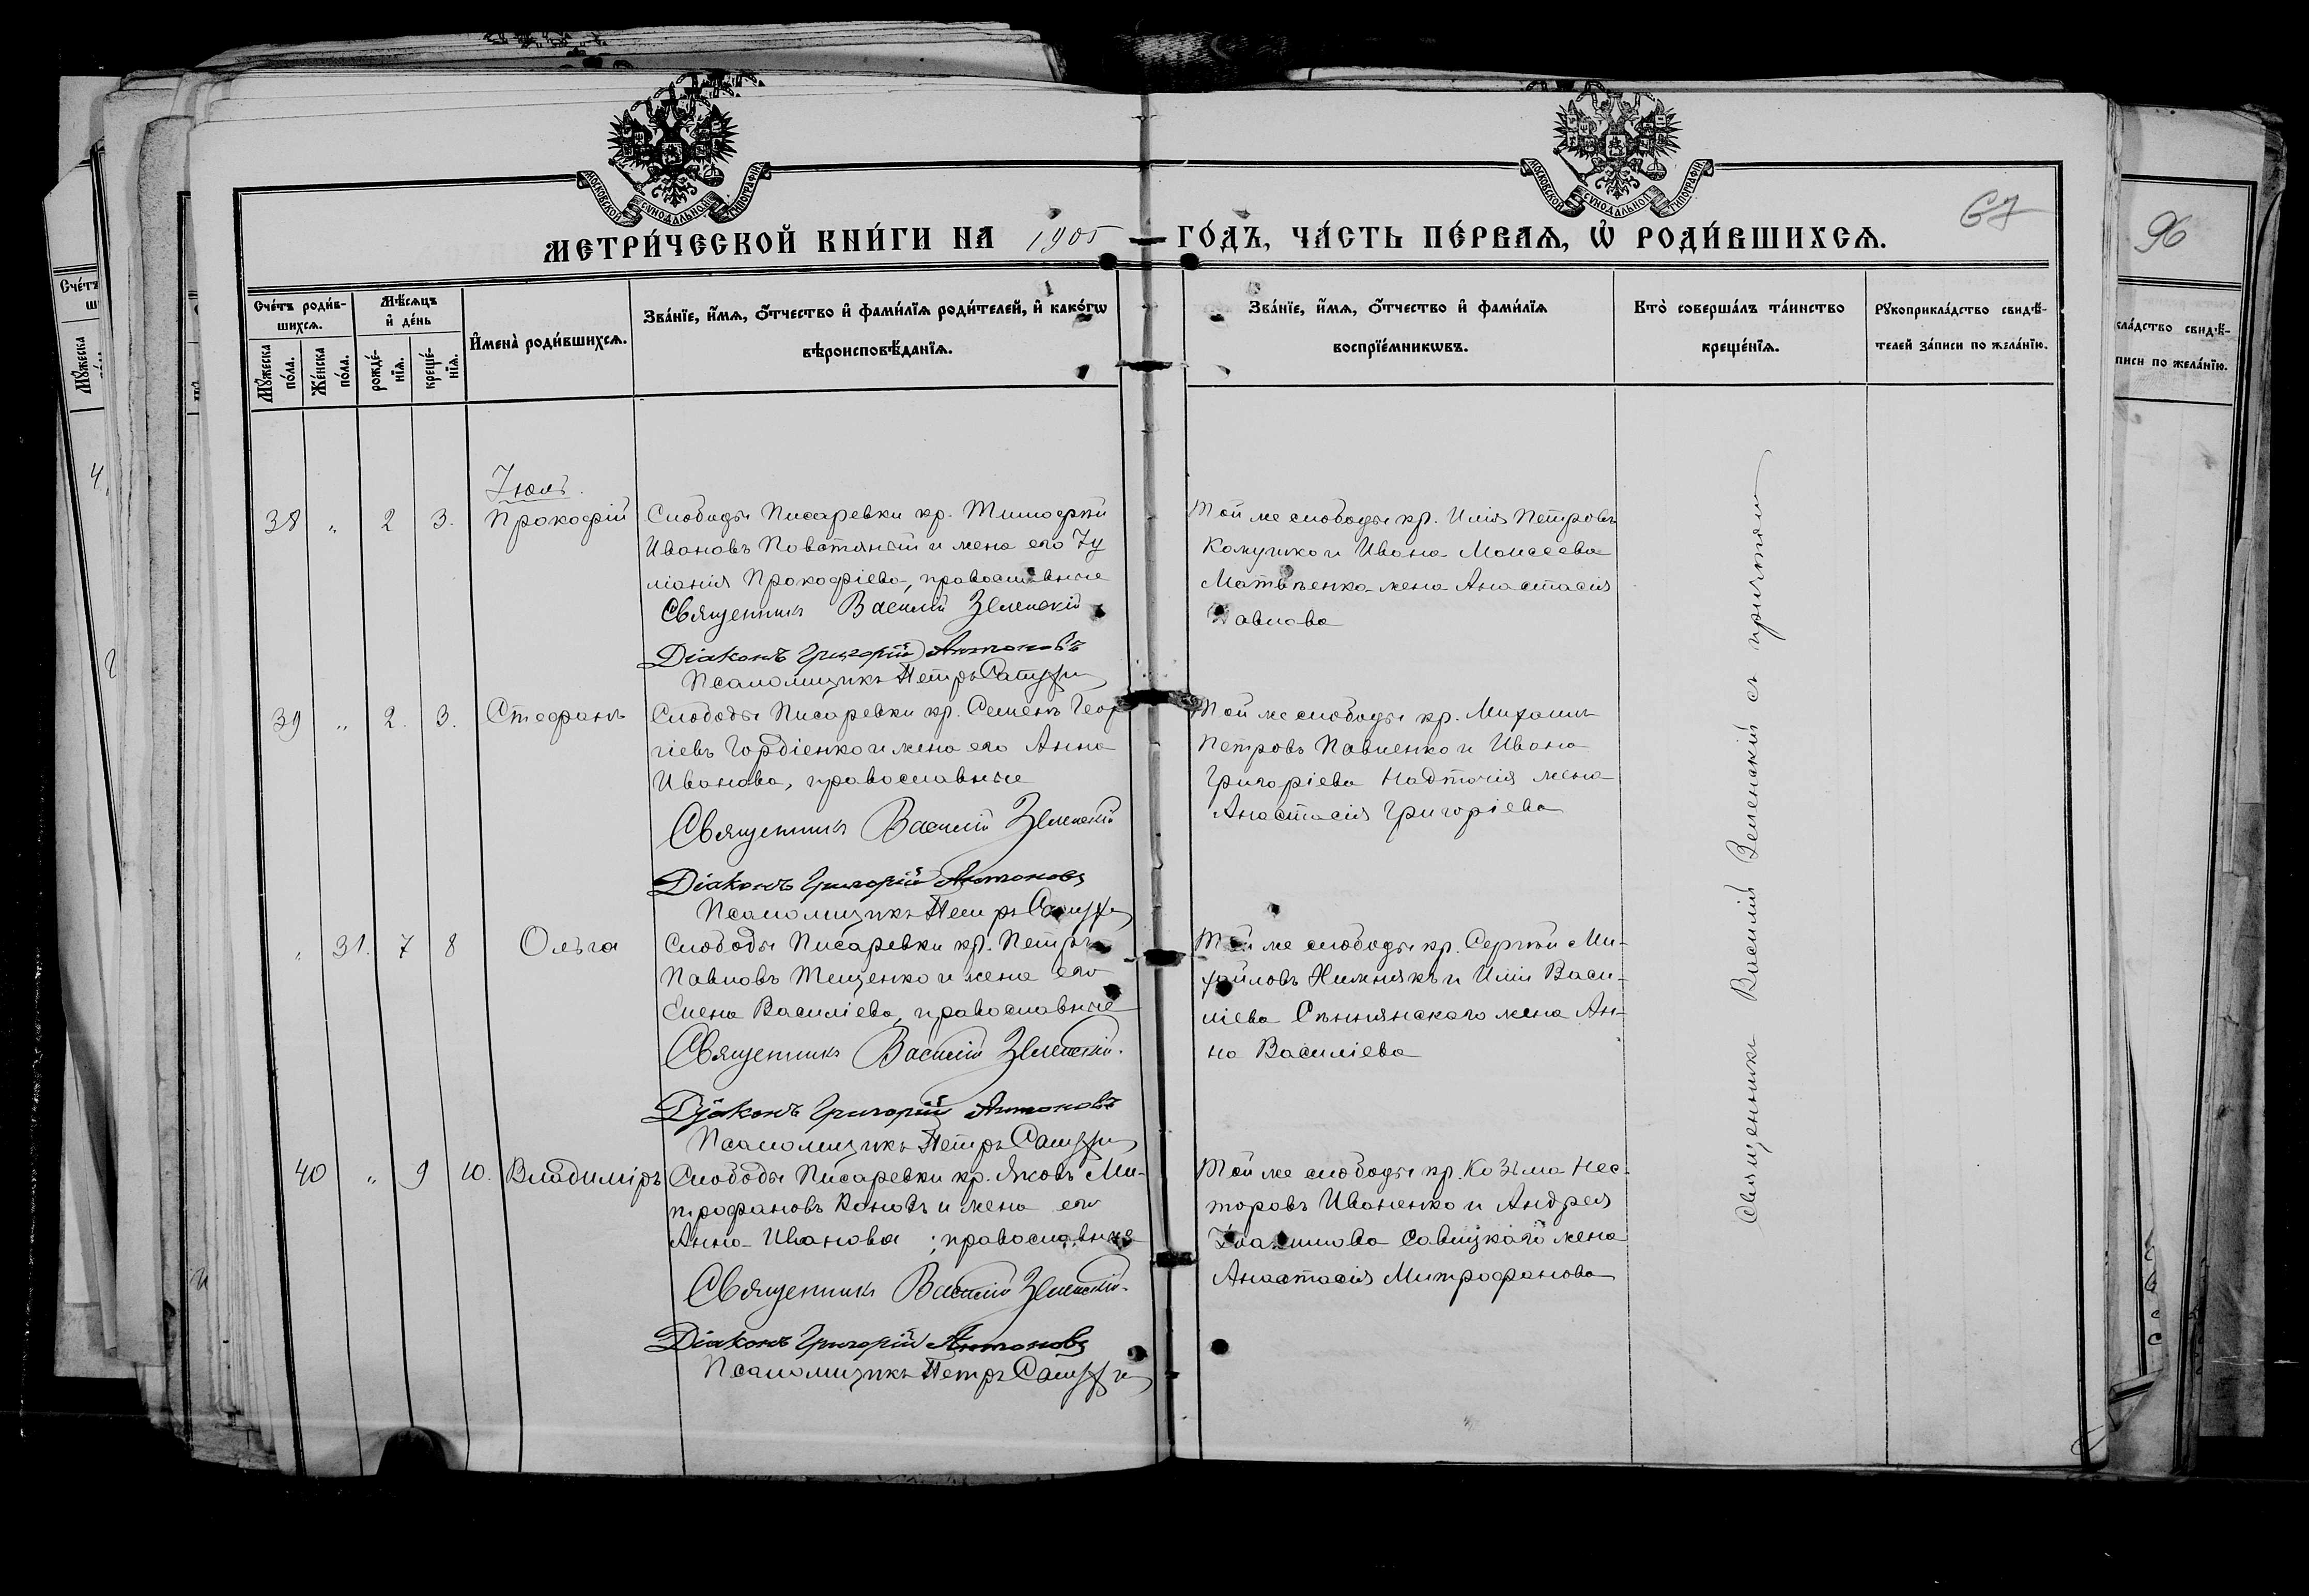 МОСКОВСКОЙ СѴНОДАЛЬНОЙ ТИПОГРАФІИ
МОСКОВСКОЙ СѴНОДАЛЬНОЙ ТИПОГРАФІИ
67
96
МЕТРИ́ЧЕСКОЙ КНИ́ГИ НА 1905 ГО́ДЪ, ЧА́СТЬ ПЕ́РВАѦ, Ѡ҆ РОДИ́ВШИХСѦ.
Сче́тъ роди́в-
шихсѧ.
Мꙋ́жеска
по́ла.
Же́нска
по́ла.
Мѣ́сѧцъ
и҆ де́нь
рожде́-
нїѧ.
креще́-
нїѧ.
И҆мена̀ роди́вшихсѧ.
Зва́нїе, и҆́мѧ, ѻ҆́тчество и҆ фами́лїѧ роди́телей, и҆ како́гѡ
вѣроисповѣ́данїѧ.
Зва́нїе, и҆́мѧ, ѻ҆́тчество и҆ фами́лїѧ
воспрїе́мникѡвъ.
Кто̀ соверша́лъ та́инство
креще́нїѧ.
Рꙋкоприкла́дство свидѣ́-
телей за́писи по жела́нїю.
Іюль.
38 „ 2 3. Прокофій
Слободы Писаревки кр. Тимофей
Ивановъ Повстяной и жена его Іу
ліанія Прокофіева, православные
Священникъ Василій Зеленскій
Діаконъ Григорій Антоновъ
Псаломщикъ Петръ
Той же слободы кр. Илія Петровъ
и Ивана Моисеева
Матвѣенка жена Анастасія
Павлова
39 „ 2. 3. Стефанъ
Слободы Писаревки кр. Семенъ Геор
гіевъ Гордіенко и жена его Анна
Иванова, православные
Священникъ Василій Зеленскій
Діаконъ Григорій Антоновъ
Псаломщикъ Петръ
Той же слободы кр. Михаилъ
Петровъ Павленко и Ивана
Григоріева Надточія жена
Анастасія Григоріева
„ 31. 7 8 Ольга
Слободы Писаревки кр. Петръ
Павловъ Тещенко и жена его
Елена Василіева, православные
Священникъ Василій Зеленскій.
Діаконъ Григорій Антоновъ
Псаломщикъ Петръ
Той же слободы кр. Сергѣй Ми-
хайловъ Нижникъ и Иліи Васи-
ліева Сѣннянскаго жена Ан-
на Василіева
40 „ 9 10. Владиміръ
Слободы Писаревки кр. Яковъ Ми-
трофановъ Коновъ и жена его
Анна Иванова; православные
Священникъ Василій Зеленскій.
Діаконъ Григорій Антоновъ
Псаломщикъ Петръ
Той же слободы кр. Козьма Нес-
торовъ Иваненко и Андрея
Савицкаго жена
Анастасія Митрофанова
Священникъ Василій Зеленскій съ причтомъ